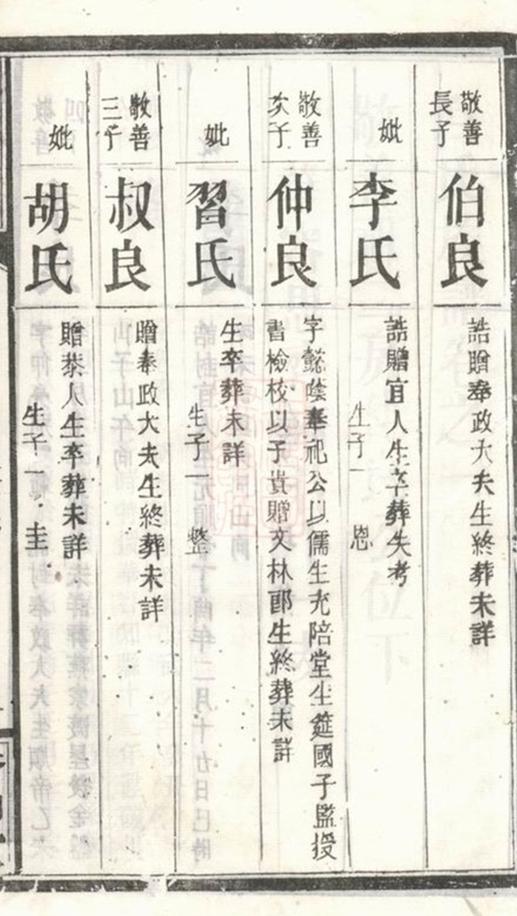 敬善
長子
伯良
誥贈奉政大夫生終葬未詳
妣
李氏
誥贈宜人生卒葬失考
生子一 恩
敬善
次子
仲良
字懿陰奉祀公以儒生充陪堂生薙國子監授
書檢校以子貴贈文林郎生終葬未詳
妣
習氏
生卒葬未詳
生子一 整
敬善
三子
叔良
贈奉政大夫生終葬未詳
妣
胡氏
贈恭人生卒葬未詳
生子一 圭